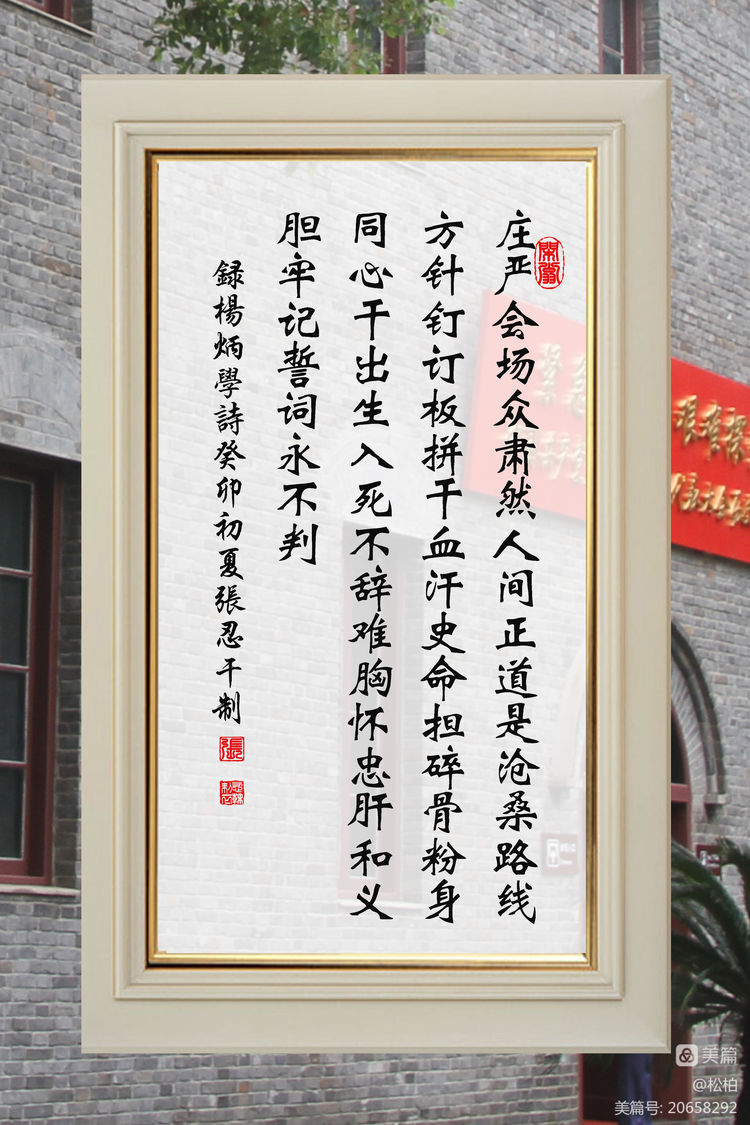 庄严会场众肃然人间正道是沧桑路线
方针钉订板拼干血汗史命担碎骨粉身
同心干出生入死不辞难胸怀忠肝和义
胆牢记誓词永不判
録楊炳學詩癸卯初夏張忍干制
張
美篇
@松柏
美篇号: 20658292